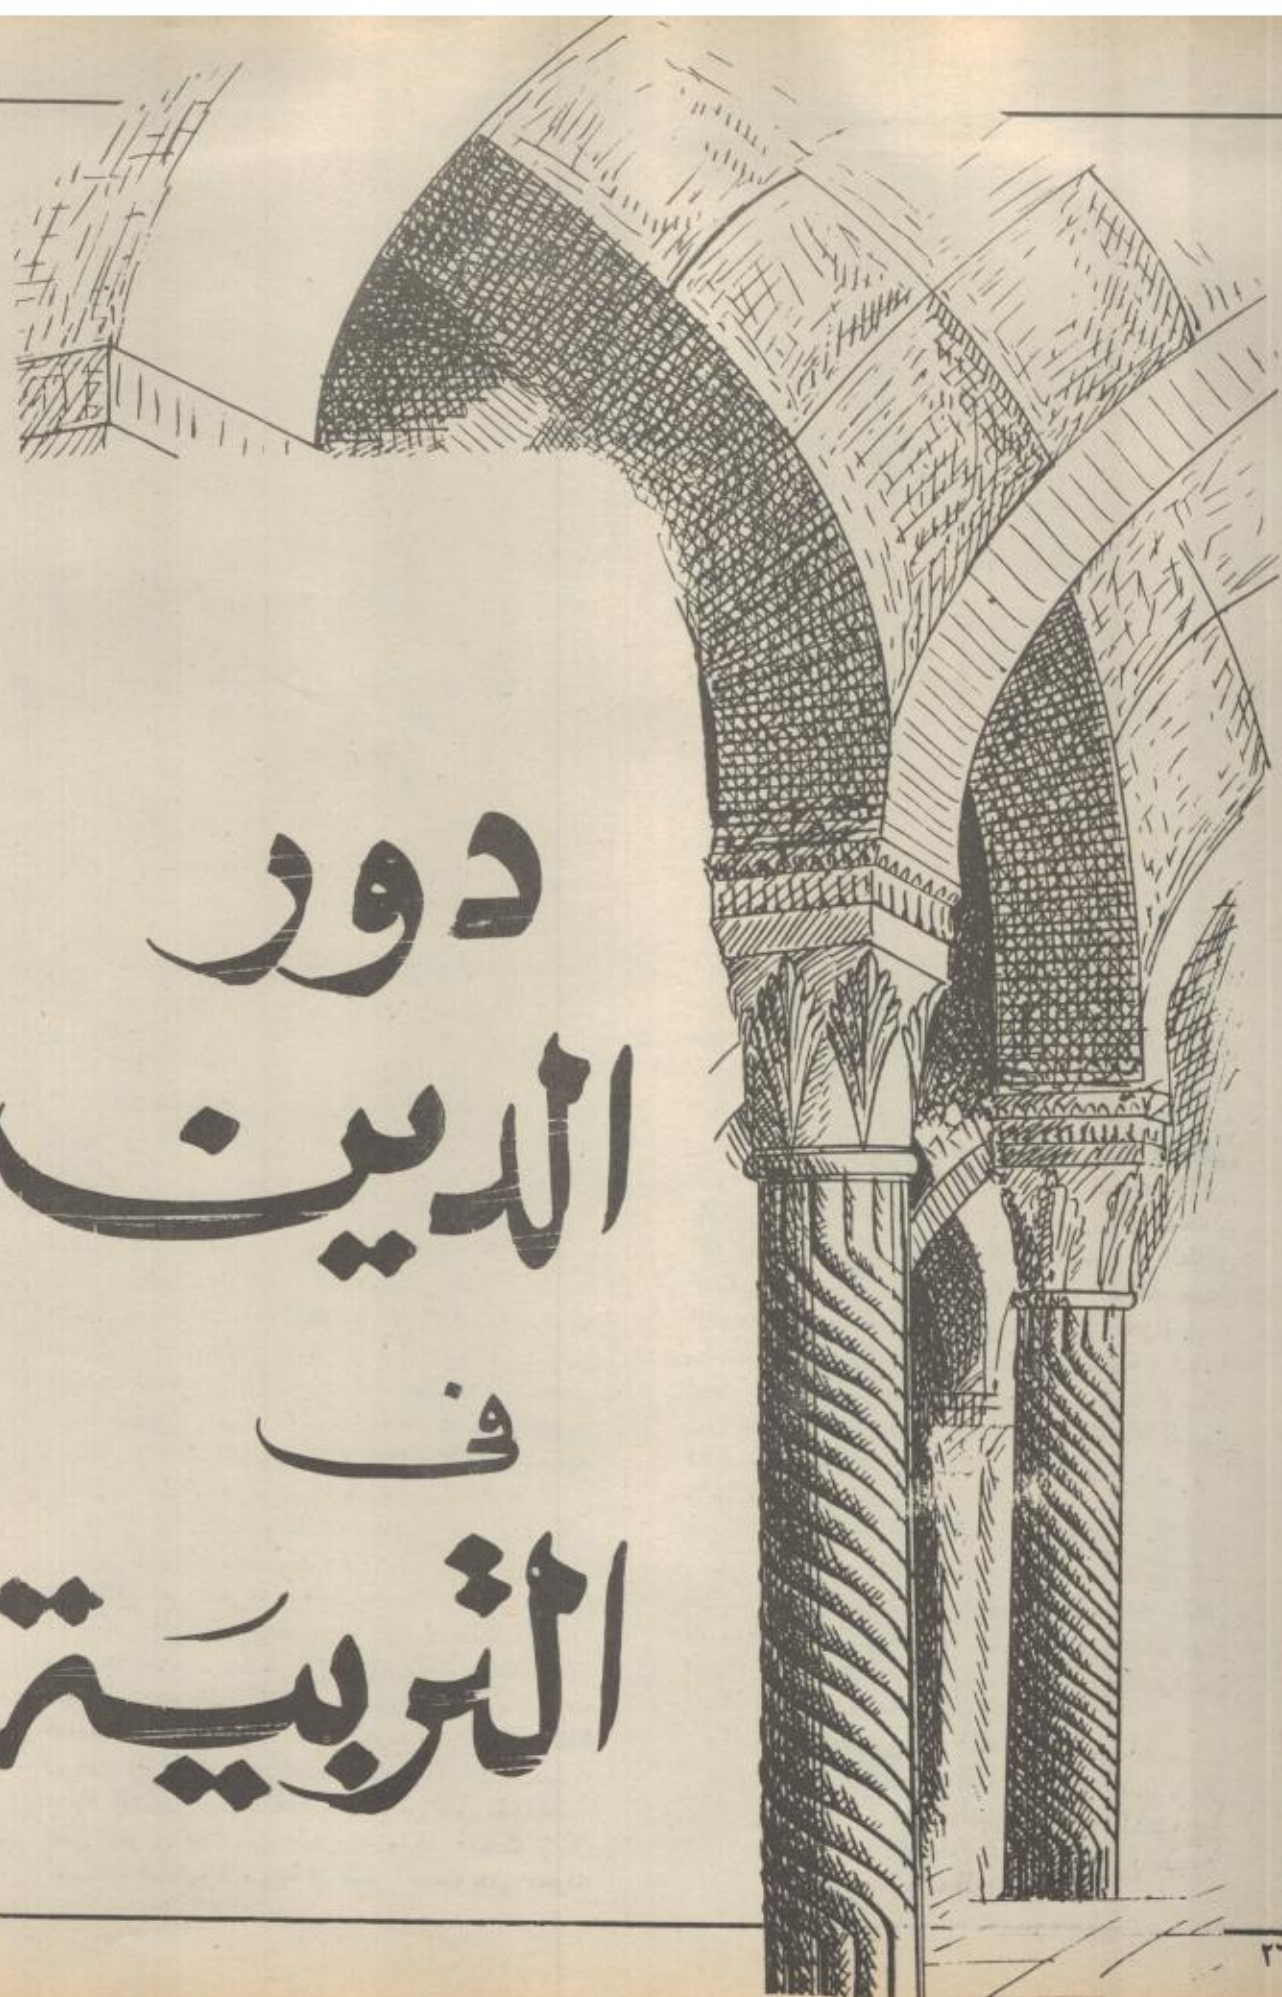 دور
الدين
فى
التربية